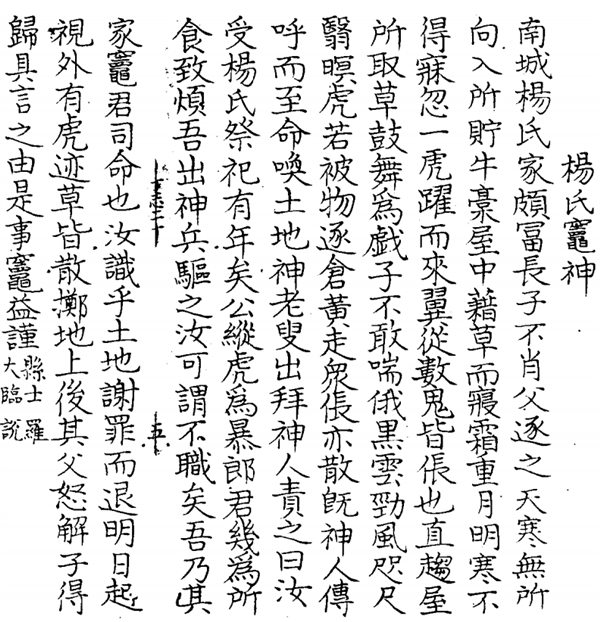 楊氏竈神
南城楊氏家頗冨長子不肖父逐之天寒無所
向入所貯牛藁屋中藉草而寢霜重月明寒不
得寐忽一虎躍而來翼從數鬼皆倀也直趨屋
所取草鼓舞為戲子不敢喘俄黒雲勁風咫尺
翳暝虎若被物逐倉黃走衆倀亦散旣神人傳
呼而至命喚土地神老叟出拜神人責之曰汝
受楊氏祭祀有年矣公縱虎為暴郎君幾為所
食致煩吾出神兵驅之汝可謂不職矣吾乃其
家竈君司命也汝識乎土地謝罪而退明日起
視外有虎迹草皆散擲地上後其父怒解子得
歸具言之由是事竈益謹縣士羅
大臨說